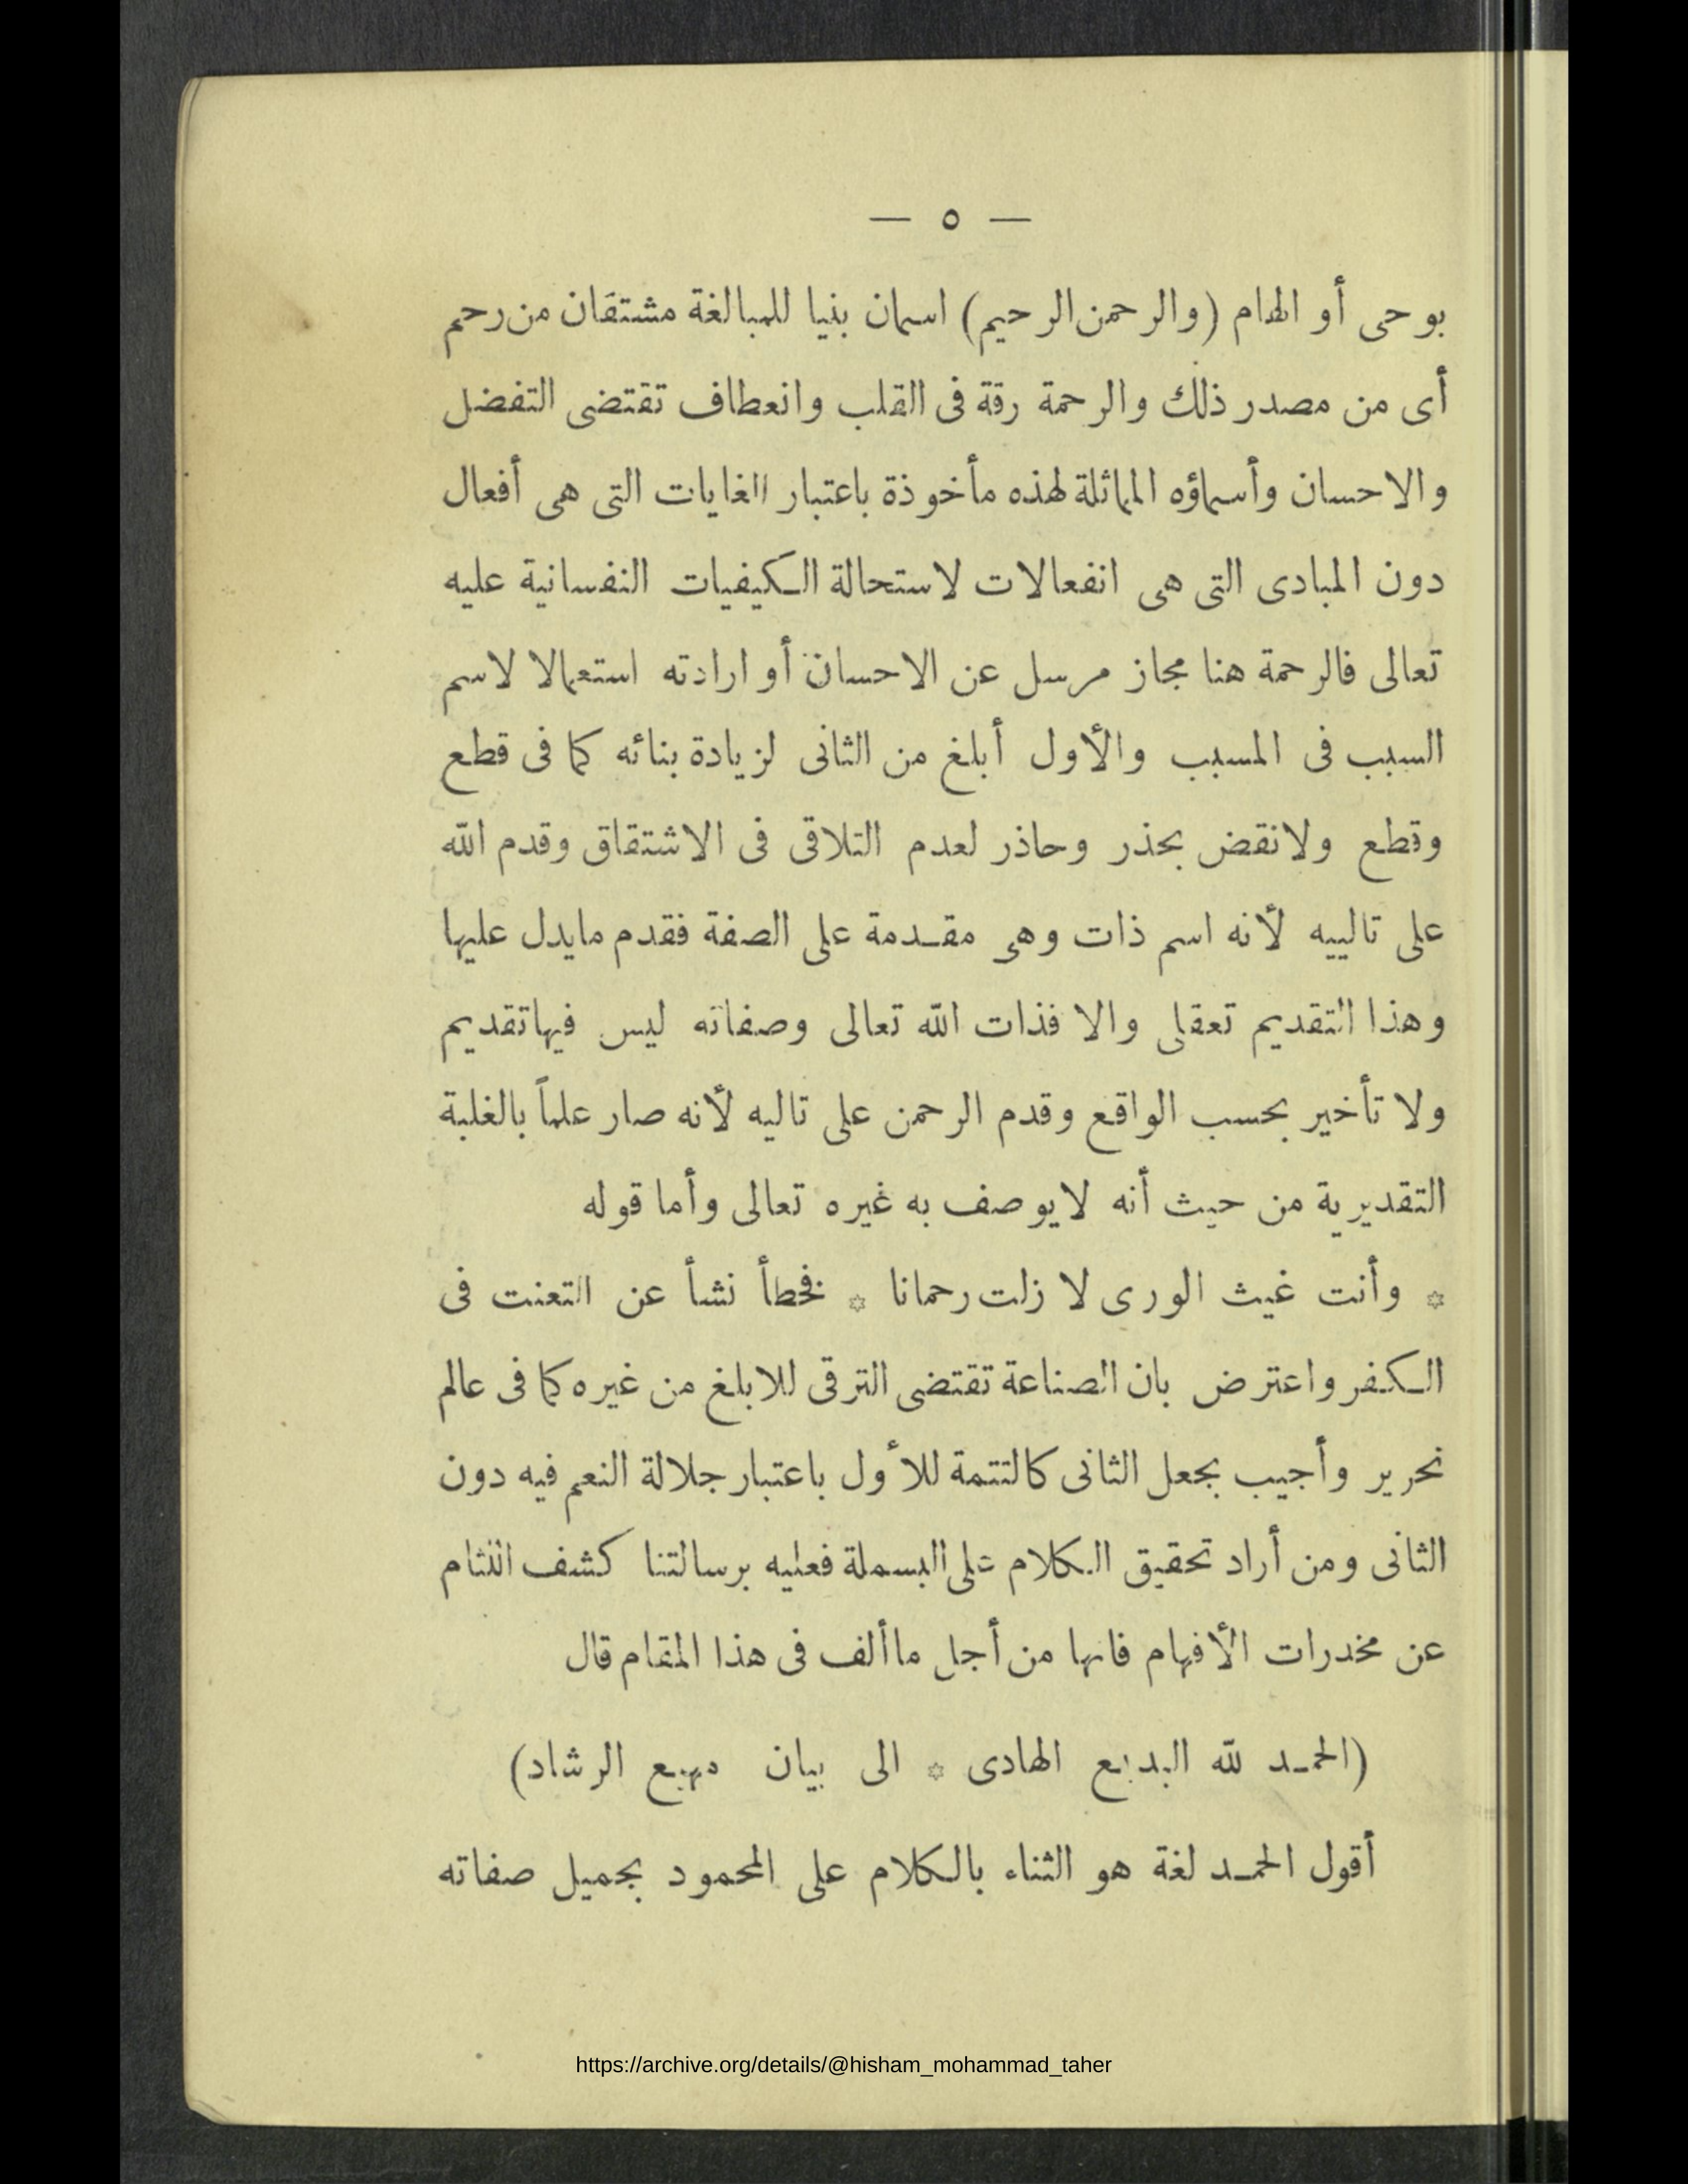 — ٥ —
بوحى أو الهام (والرحمن الرحيم) اسمان بنيا للمبالغة مشتقان من رحم
أى من مصدر ذلك والرحمة رقة فى القلب وانعطاف تقتضى التفضل
والاحسان وأسماؤه المماثلة لهذه مأخوذة باعتبار الغايات التى هى أفعال
دون المبادى التى هى انفعالات لاستحالة الكيفيات النفسانية عليه
تعالى فالرحمة هنا مجاز مرسل عن الاحسان أو ارادته استعمالا لاسم
السبب فى المسبب والأول أبلغ من الثانى لزيادة بنائه كما فى قطع
وقطع ولانقض بحذر وحاذر لعدم التلاقى فى الاشتقاق وقدم الله
على تالييه لأنه اسم ذات وهى مقدمة على الصفة فقدم مايدل عليها
وهذا التقديم تعقلى والا فذات الله تعالى وصفاته ليس فيها تقديم
ولا تأخير بحسب الواقع وقدم الرحمن على تاليه لأنه صار علماً بالغلبة
التقديرية من حيث أنه لايوصف به غيره تعالى وأما قوله
* وأنت غيث الورى لا زلت رحمانا * فخطأ نشأ عن التعنت فى
الكفر واعترض بان الصناعة تقتضى الترقى للابلغ من غيره كما فى عالم
نحرير وأجيب بجعل الثانى كالتتمة للأول باعتبار جلالة النعم فيه دون
الثانى ومن أراد تحقيق الكلام على البسملة فعليه برسالتنا كشف اللثام
عن مخدرات الأفهام فانها من أجل ماألف فى هذا المقام قال
(الحمد لله البديع الهادى * الى بيان مهيع الرشاد)
أقول الحمد لغة هو الثناء بالكلام على المحمود بجميل صفاته
https://archive.org/details/@hisham_mohammad_taher